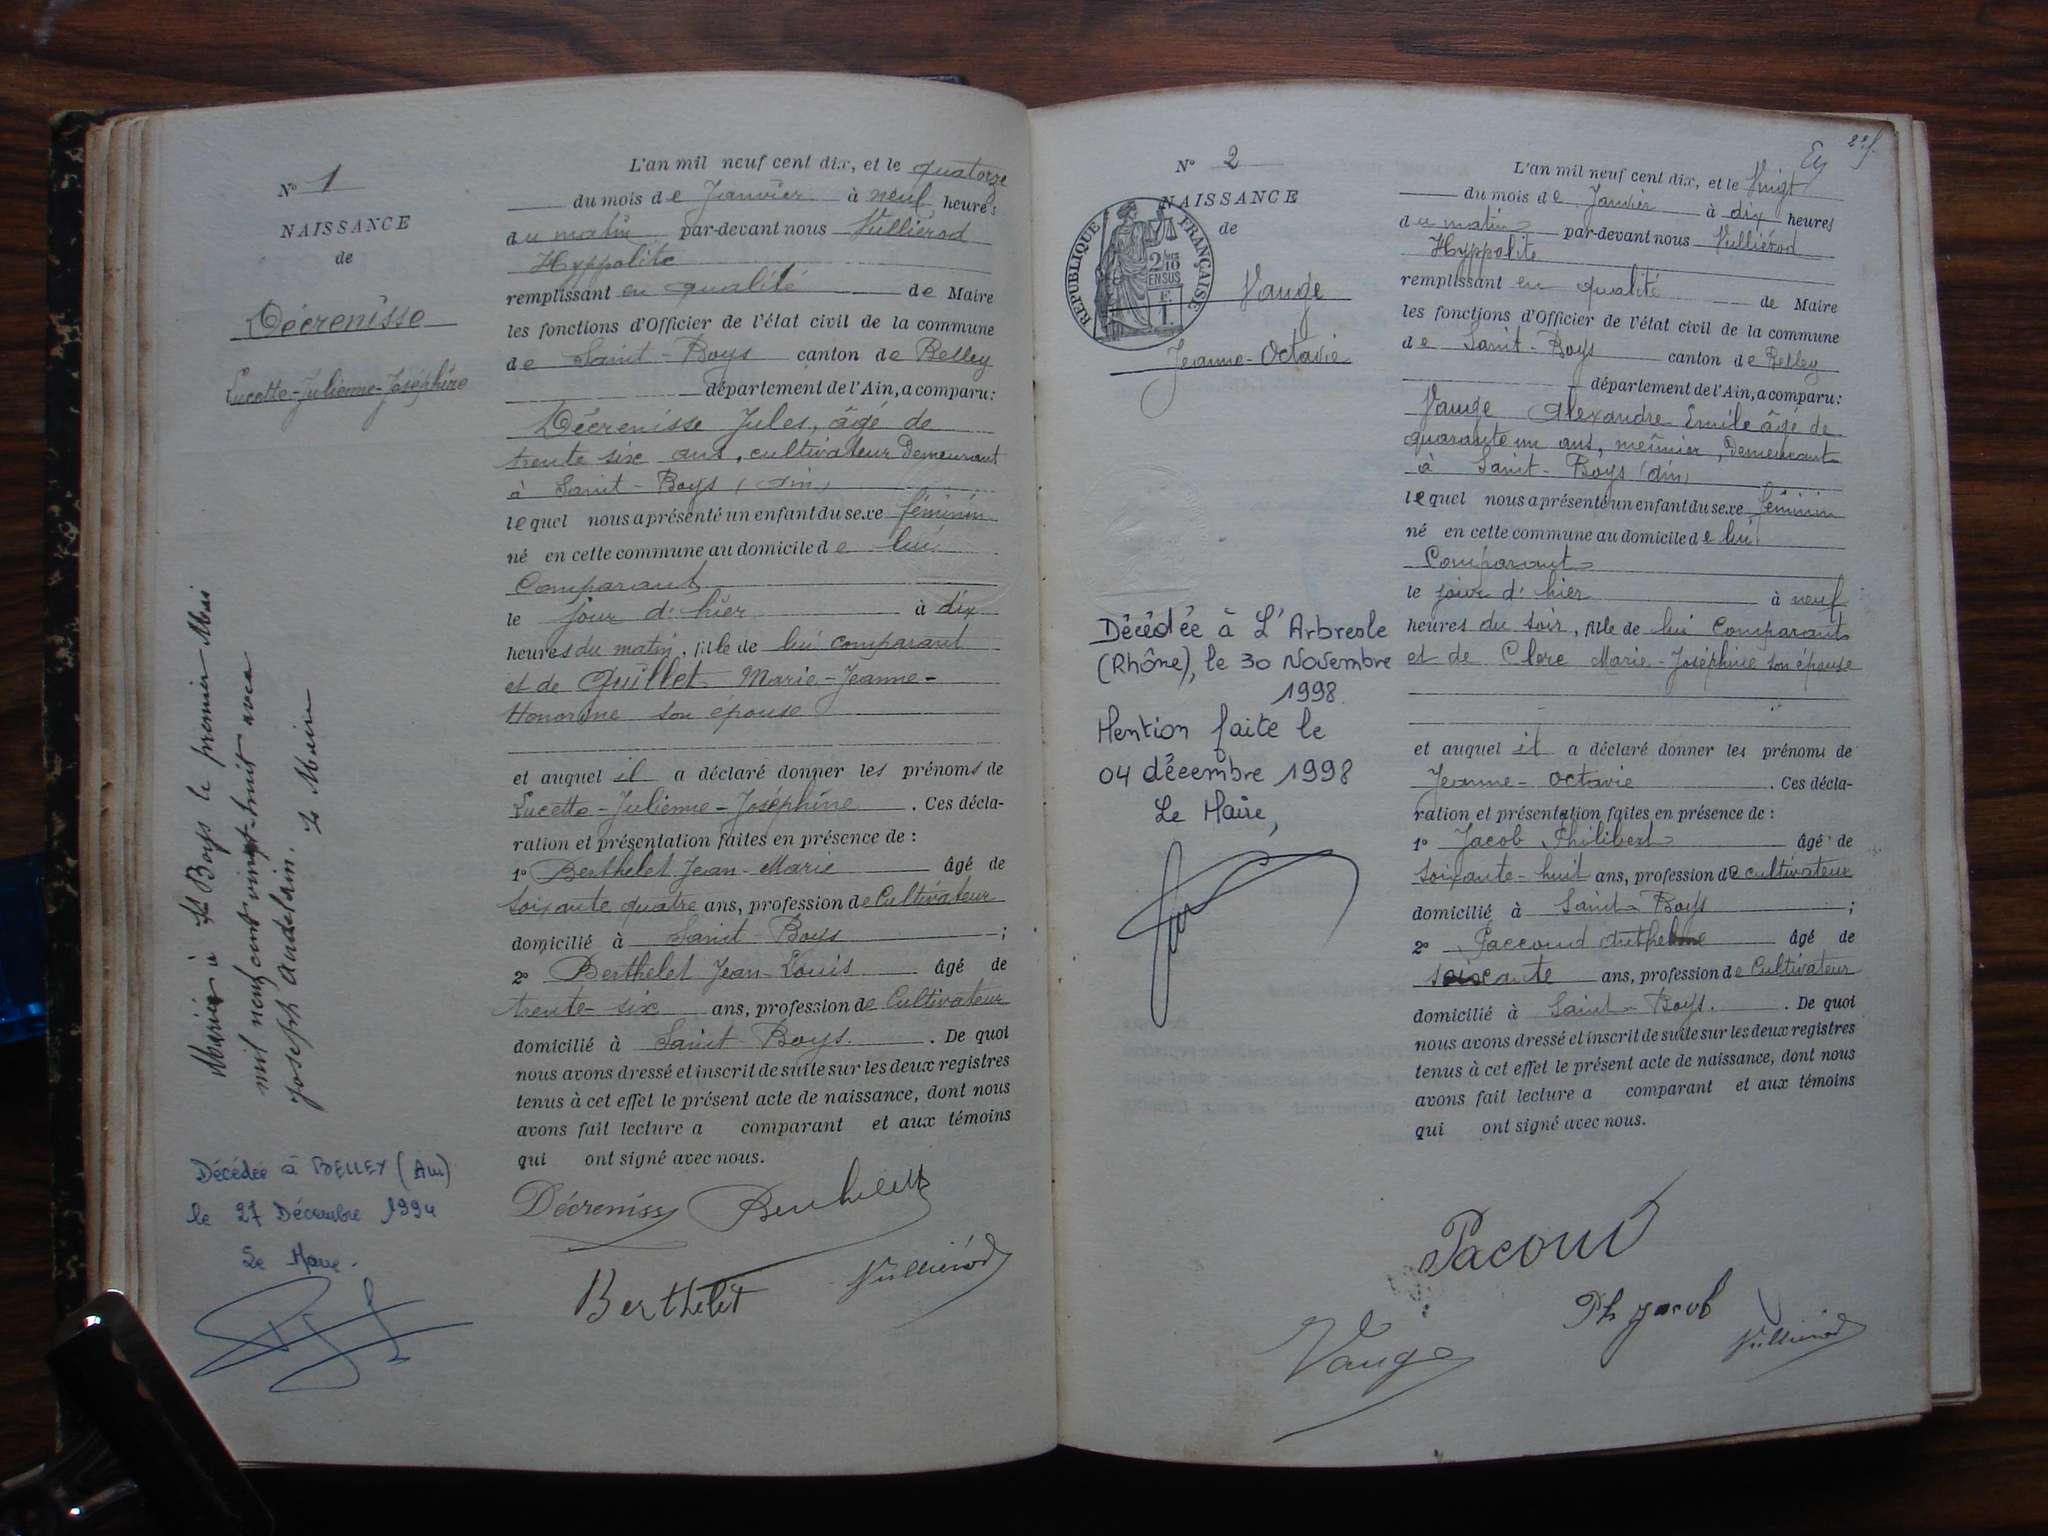 N° 1
NAISSANCE
de
Décrenisse
Lucette-Julienne-Joséphine
Mariée à St Boys le premier Mai
mil neuf cent vingt-huit avec
Joseph Andelain.
Le Maire
Décédée à BELLEY (Ain)
le 27 Décembre 1994
Le Maire.
L'an mil neuf cent dix, et le quatorze
du mois de Janvier à neuf heures
du matin par-devant nous Vulliérod
Hyppolite
remplissant en qualité de Maire
les fonctions d'Officier de l'état civil de la commune
de Saint-Boys canton de Belley
département de l'Ain, a comparu:
Décrenisse Jules, âgé de
trente six ans, cultivateur Demeurant
à Saint-Boys (Ain)
lequel nous a présenté un enfant du sexe féminin
né en cette commune au domicile de lui
Comparant
le jour d'hier à dix
heures du matin, fille de lui comparant
et de Quillet Marie-Jeanne-
Honorine son épouse
et auquel il a déclaré donner les prénoms de
Lucette-Julienne-Joséphine. Ces décla-
ration et présentation faites en présence de :
1° Berthelet Jean-Marie âgé de
soixante quatre ans, profession de Cultivateur
domicilié à Saint-Boys ;
2° Berthelet Jean-Louis âgé de
trente-six ans, profession de Cultivateur
domicilié à Saint Boys. De quoi
nous avons dressé et inscrit de suite sur les deux registres
tenus à cet effet le présent acte de naissance, dont nous
avons fait lecture a comparant et aux témoins
qui ont signé avec nous.
Décreniss Berthelet
Berthelet Vulliérod
N° 2
NAISSANCE
de
RÉPUBLIQUE FRANÇAISE
2/10
EN SUS
F.
1.
Vauge
Jeanne-Octavie
Décédée à L'Arbresle
(Rhône), le 30 Novembre
1998
Mention faite le
04 décembre 1998
Le Maire,
L'an mil neuf cent dix, et le Vingt
du mois de Janvier à dix heures
du matin par-devant nous Vulliérod
Hyppolite
remplissant en qualité de Maire
les fonctions d'Officier de l'état civil de la commune
de Saint-Boys canton de Belley
département de l'Ain, a comparu:
Vauge Alexandre Emile âgé de
quarante un ans, meunier, Demeurant
à Saint-Boys (Ain)
lequel nous a présenté un enfant du sexe féminin
né en cette commune au domicile de lui
Comparant
le jour d'hier à neuf
heures du soir, fille de lui Comparant
et de Clerc Marie-Joséphine son épouse
et auquel il a déclaré donner les prénoms de
Jeanne-Octavie. Ces décla-
ration et présentation faites en présence de :
1° Jacob Philibert âgé de
soixante-huit ans, profession de cultivateur
domicilié à Saint-Boys ;
2° Paccoud Anthelme âgé de
soixante ans, profession de Cultivateur
domicilié à Saint-Boys. De quoi
nous avons dressé et inscrit de suite sur les deux registres
tenus à cet effet le présent acte de naissance, dont nous
avons fait lecture a comparant et aux témoins
qui ont signé avec nous.
Pacoud
Ph Jacob
Vauge Vulliérod